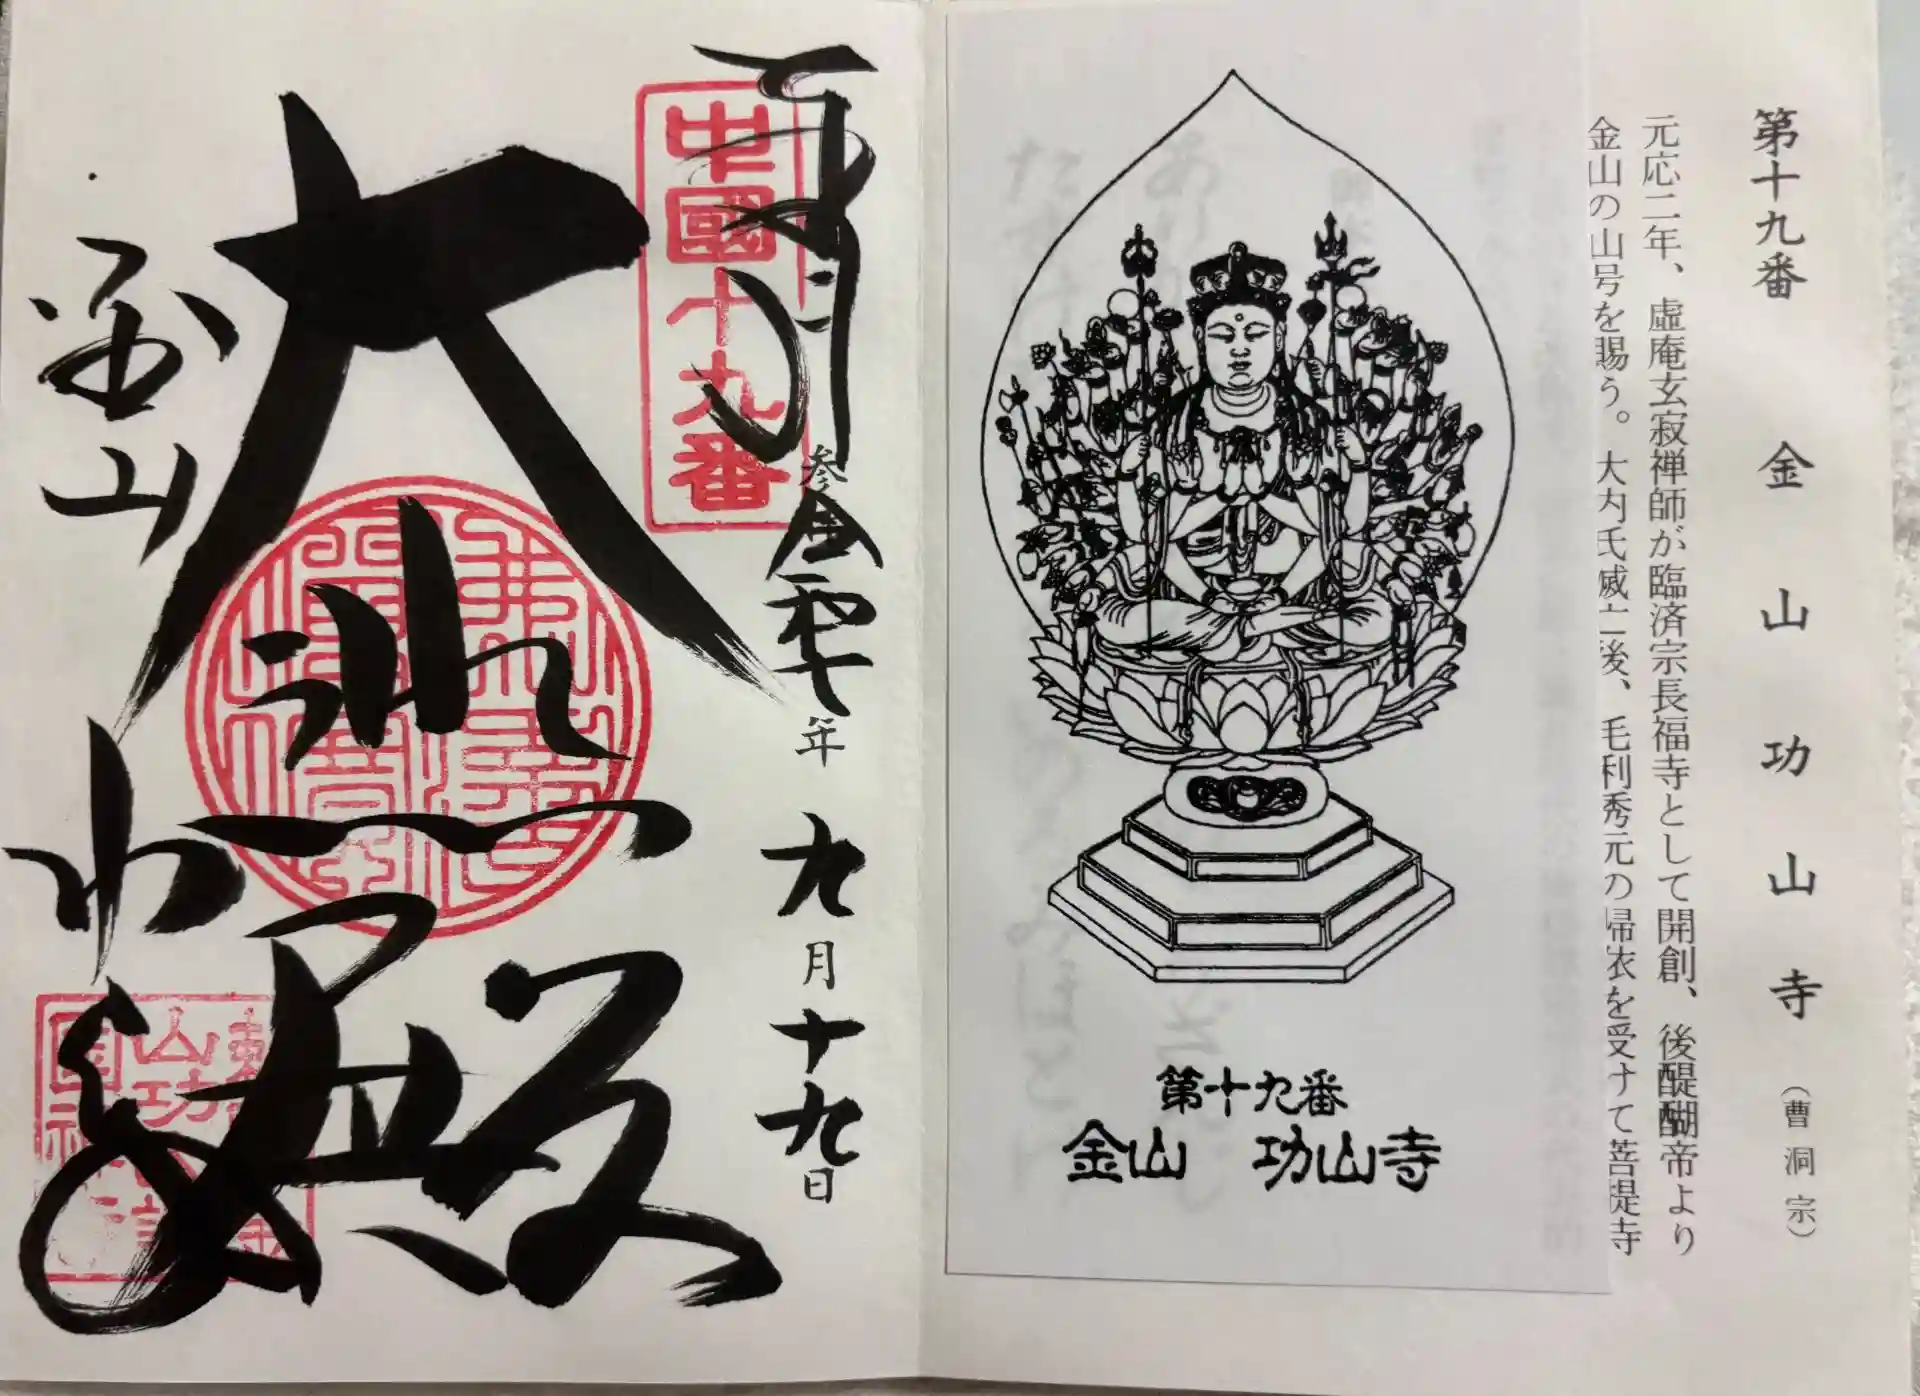 第十九番　金山　功山寺（曹洞宗）
元応二年、虚庵玄寂禅師が臨済宗長福寺として開創、後醍醐帝より
金山の山号を賜う。大内氏滅亡後、毛利秀元の帰依を受けて菩提寺
第十九番
金山　功山寺
中國十九番
奉拝
参
令和
年
九月十九日
大悲殿
金山
功山寺